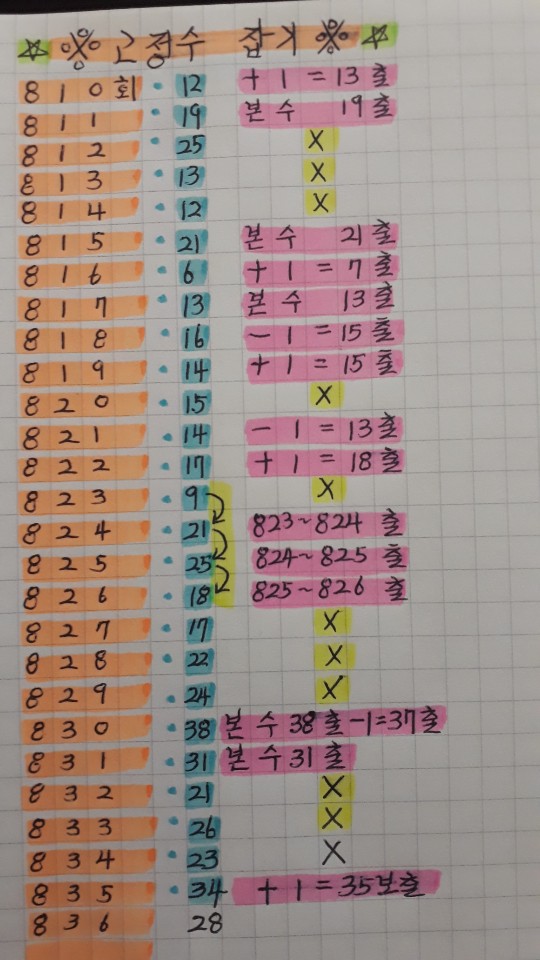 ☆ ※ 고정수 잡기 ※ ☆
810회 · 12 +1=13출
811 · 19 본수 19출
812 · 25 X
813 · 13 X
814 · 12 X
815 · 21 본수 21출
816 · 6 +1=7출
817 · 13 본수 13출
818 · 16 -1=15출
819 · 14 +1=15출
820 · 15 X
821 · 14 -1=13출
822 · 17 +1=18출
823 · 9 X
824 · 21 823~824 출
825 · 25 824~825 출
826 · 18 825~826 출
827 · 17 X
828 · 22 X
829 · 24 X
830 · 38 본수 38출 -1=37출
831 · 31 본수 31출
832 · 21 X
833 · 26 X
834 · 23 X
835 · 34 +1=35보출
836 28